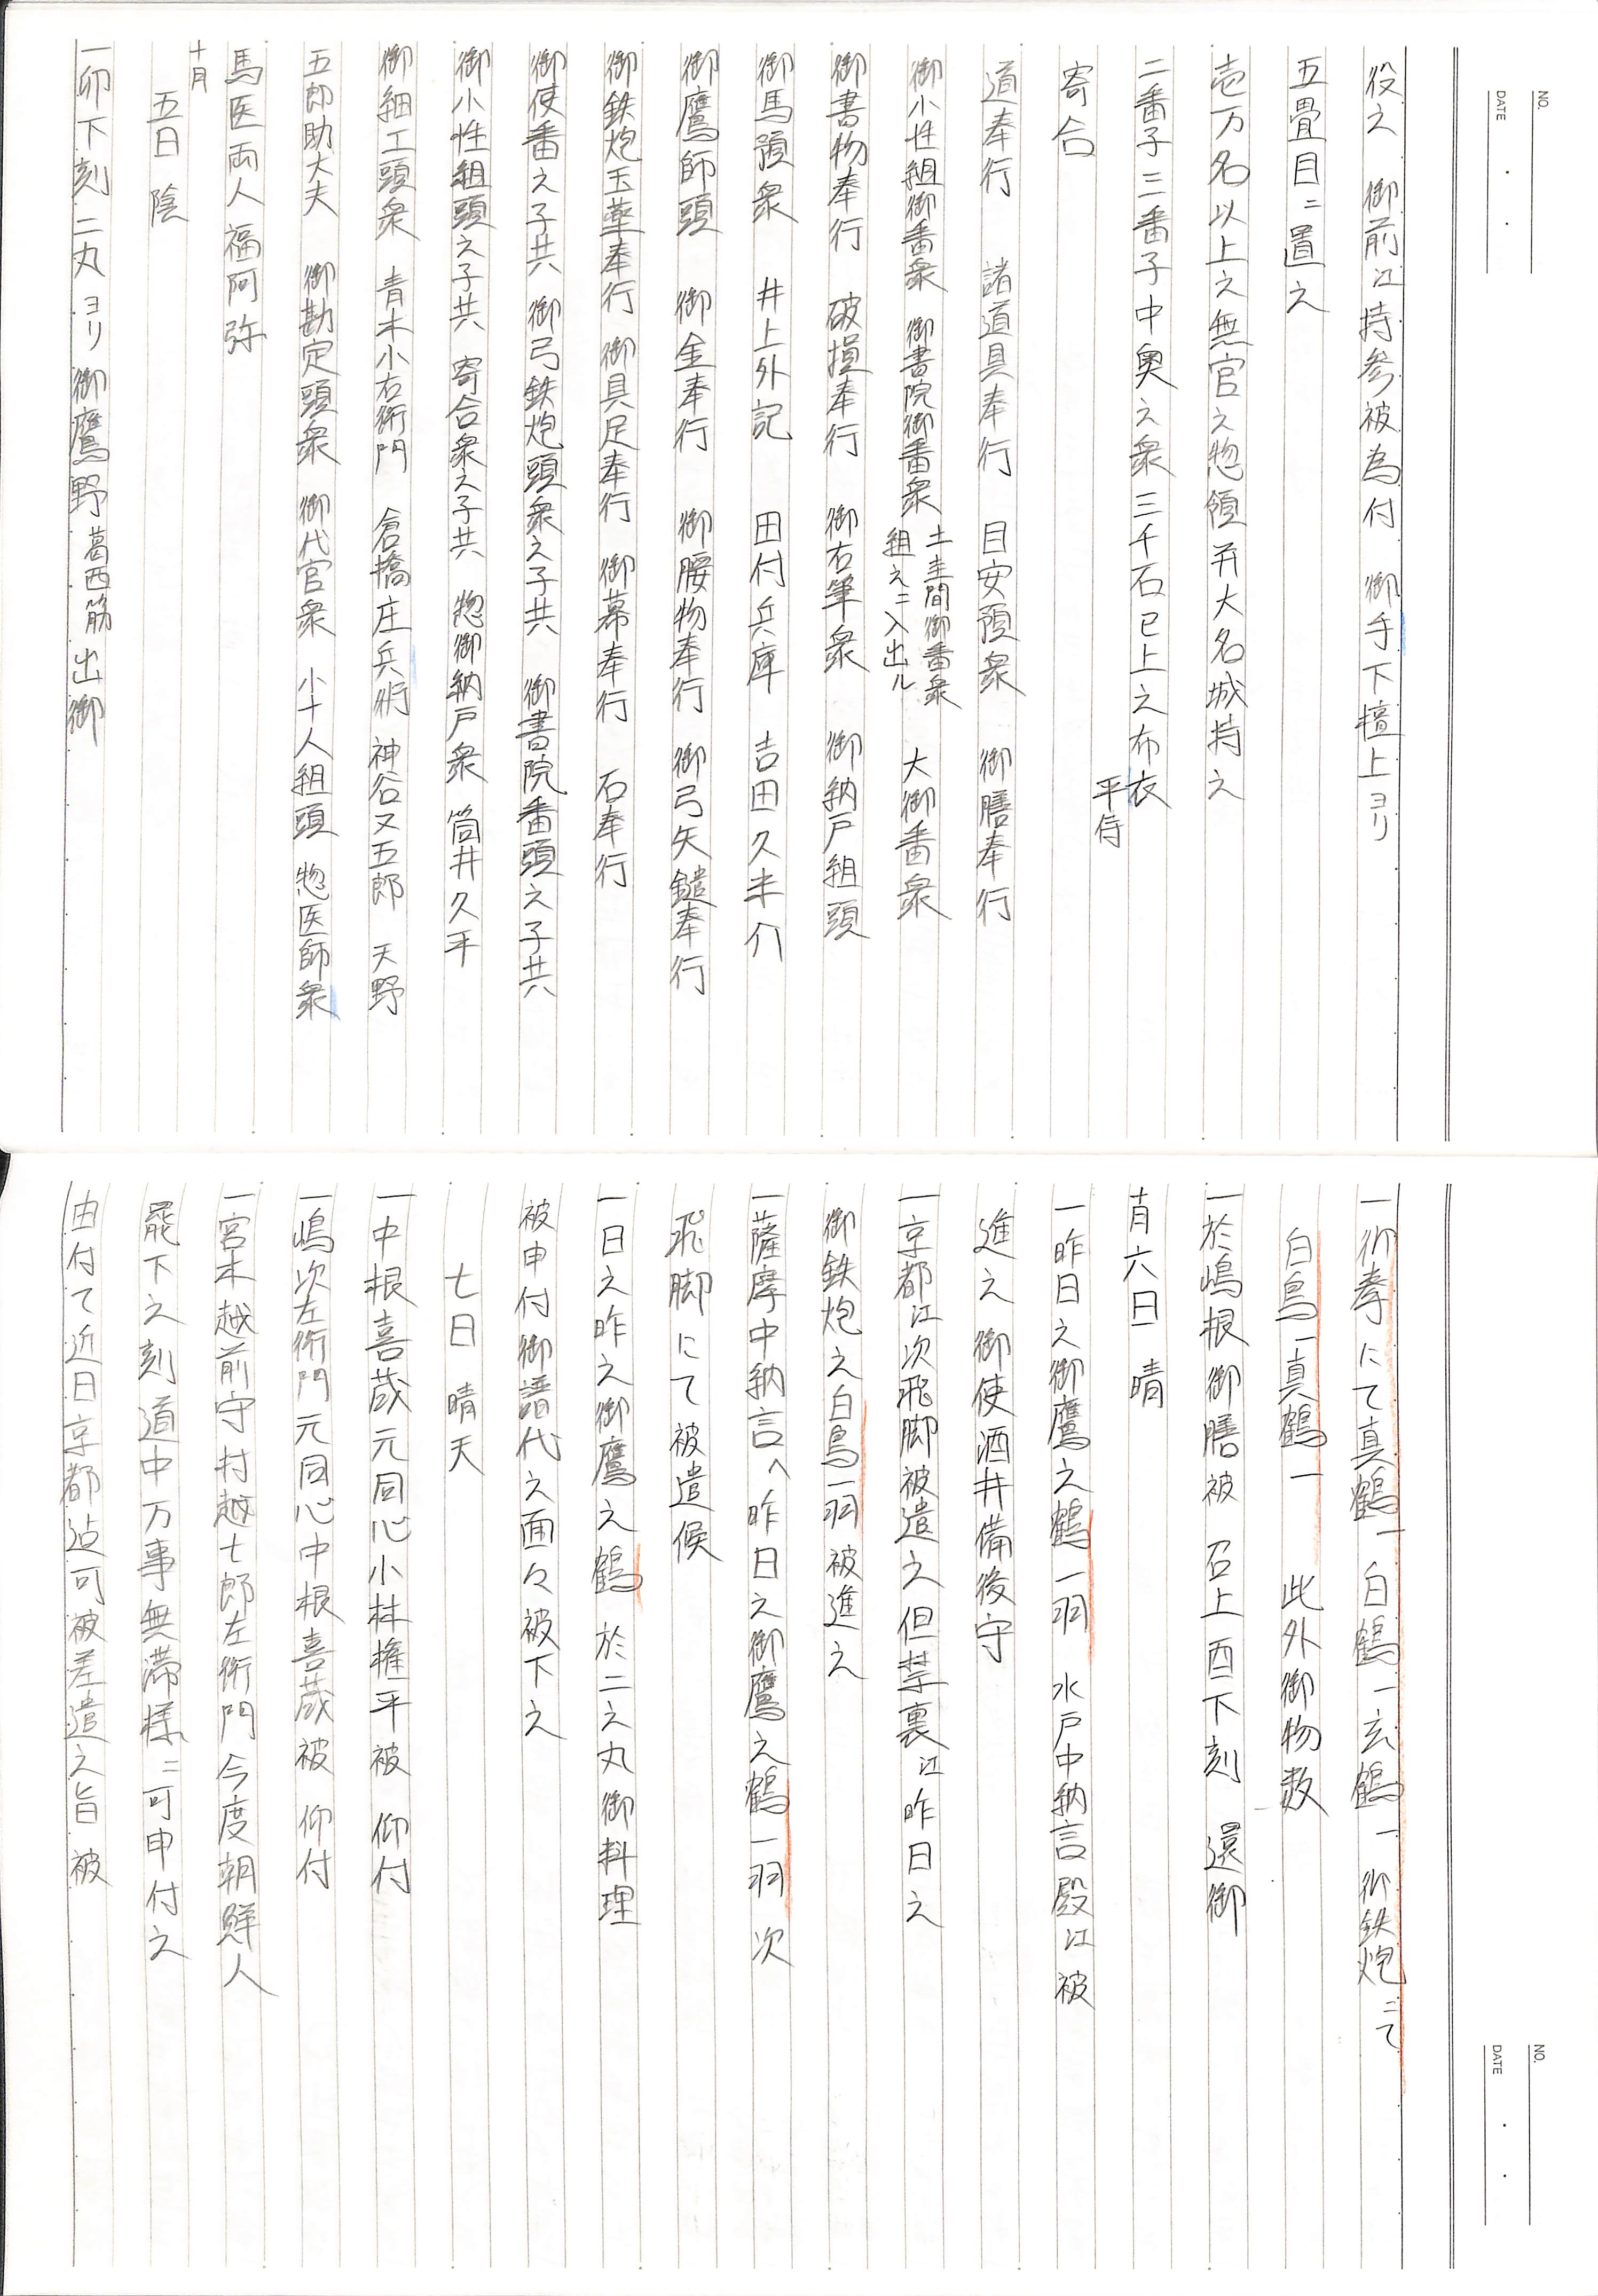 NO.
DATE
役之 御前江持参被為付 御手下檀上ヨリ
五畳目ニ置之
壱万名以上之無官之惣領并大名城持之
二番子三番子中奥之衆三千石已上之布衣
平侍
寄合
道奉行 諸道具奉行 目安預衆 御膳奉行
御小性組御番衆 御書院御番衆 土圭間御番衆
組え二入出ル 大御番衆
御書物奉行 破損奉行 御右筆衆 御納戸組頭
御馬預衆 井上外記 田付兵庫 吉田久米介
御鷹師頭 御金奉行 御腰物奉行 御弓矢鑓奉行
御鉄炮玉薬奉行 御具足奉行 御幕奉行 石奉行
御使番之子共 御弓鉄炮頭衆之子共 御書院番頭之子共
御小性組頭之子共 寄合衆之子共 惣御納戸衆 筒井久平
御細工頭衆 青木小右衛門 倉橋庄兵衛 神谷又五郎 天野
五郎助大夫 御勘定頭衆 御代官衆 小十人組頭 惣医師衆
馬医両人 福阿弥
十月
五日 陰
一卯下刻二丸ヨリ御鷹野葛西筋出御
NO.
DATE
一御拳にて真鶴一 白鶴一 玄鶴一 御鉄炮ニて
白鳥一真鶴一 此外御物数
一於嶋根御膳被 召上酉下刻 還御
十月六日 晴
一昨日之御鷹之鶴一羽 水戸中納言殿江被
進之 御使酒井備後守
一京都江次飛脚被遣之但禁裏江昨日之
御鉄炮之白鳥一羽被進之
一薩摩中納言へ昨日之御鷹之鶴一羽 次
飛脚にて被遣候
一日之昨之御鷹之鶴 於二之丸御料理
被申付御譜代之面々被下之
七日 晴天
一中根喜蔵元同心小林権平被 仰付
一嶋次左衛門元同心中根喜蔵被 仰付
一宮木越前守村越七郎左衛門今度朝鮮人
罷下之刻道中万事無滞様ニ可申付之
由付て近日京都迠可被差遣之旨 被